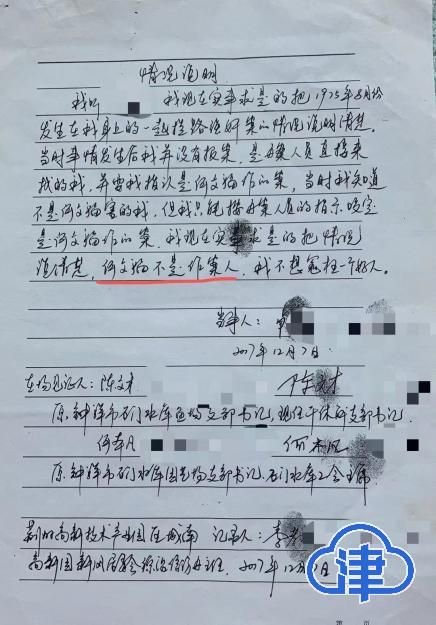 情况说明
我叫 我现在实事求是的把1975年8月份
发生在我身上的一起拦路强奸案的情况说明清楚。
当时事情发生后我并没有报案，是办案人员直接来
找的我，并要我指认是何文福作的案，当时我知道
不是何文福害的我，但我只能按办案人员的指示咬定
是何文福作的案。我现在实事求是的把情况
说清楚，何文福不是作案人，我不想冤枉一个好人。
当事人：
2017年12月7日
在场见证人：陈文才
原钟祥市石门水库 场支部书记，现任干休所支部书记。
何本凡
原钟祥市石门水库园艺场支部书记、石门水库工会主席
荆州高新技术产业园区城南 记录人：李
高新园 信访办主任 2017年12月7日
第 页
津